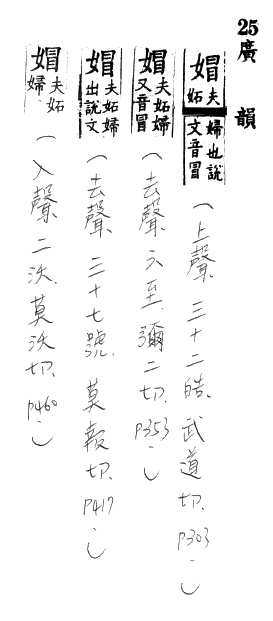 25廣韻
媢夫妬婦也說文音冒(上聲、三十二皓、武道切、p303。)
媢夫妬婦又音冒(去聲、六至、彌二切、p353。)
媢夫妬婦出說文(去聲、三十七號、莫報切、p417。)
媢夫妬婦(入聲、二沃、莫沃切、p460。)